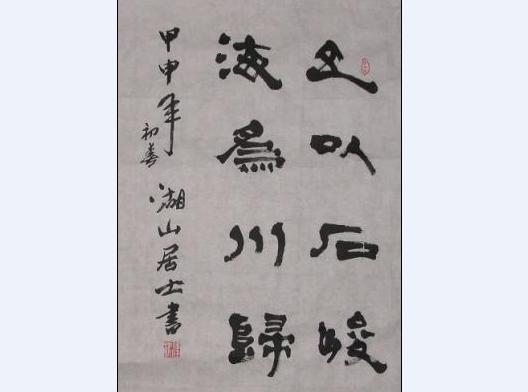 山以石峻
海為川歸
甲申年初春湖山居士書